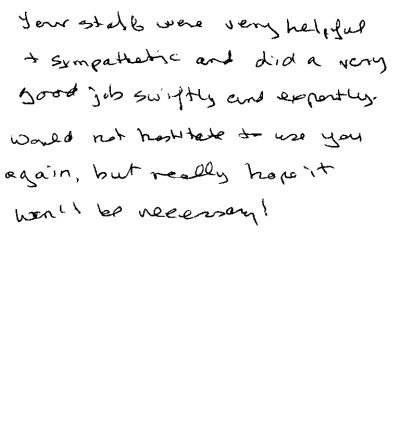 Your staff were very helpful
+ sympathetic and did a very
good job swiftly and expertly.
Would not hesitate to use you
again, but really hope it
won't be necessary!